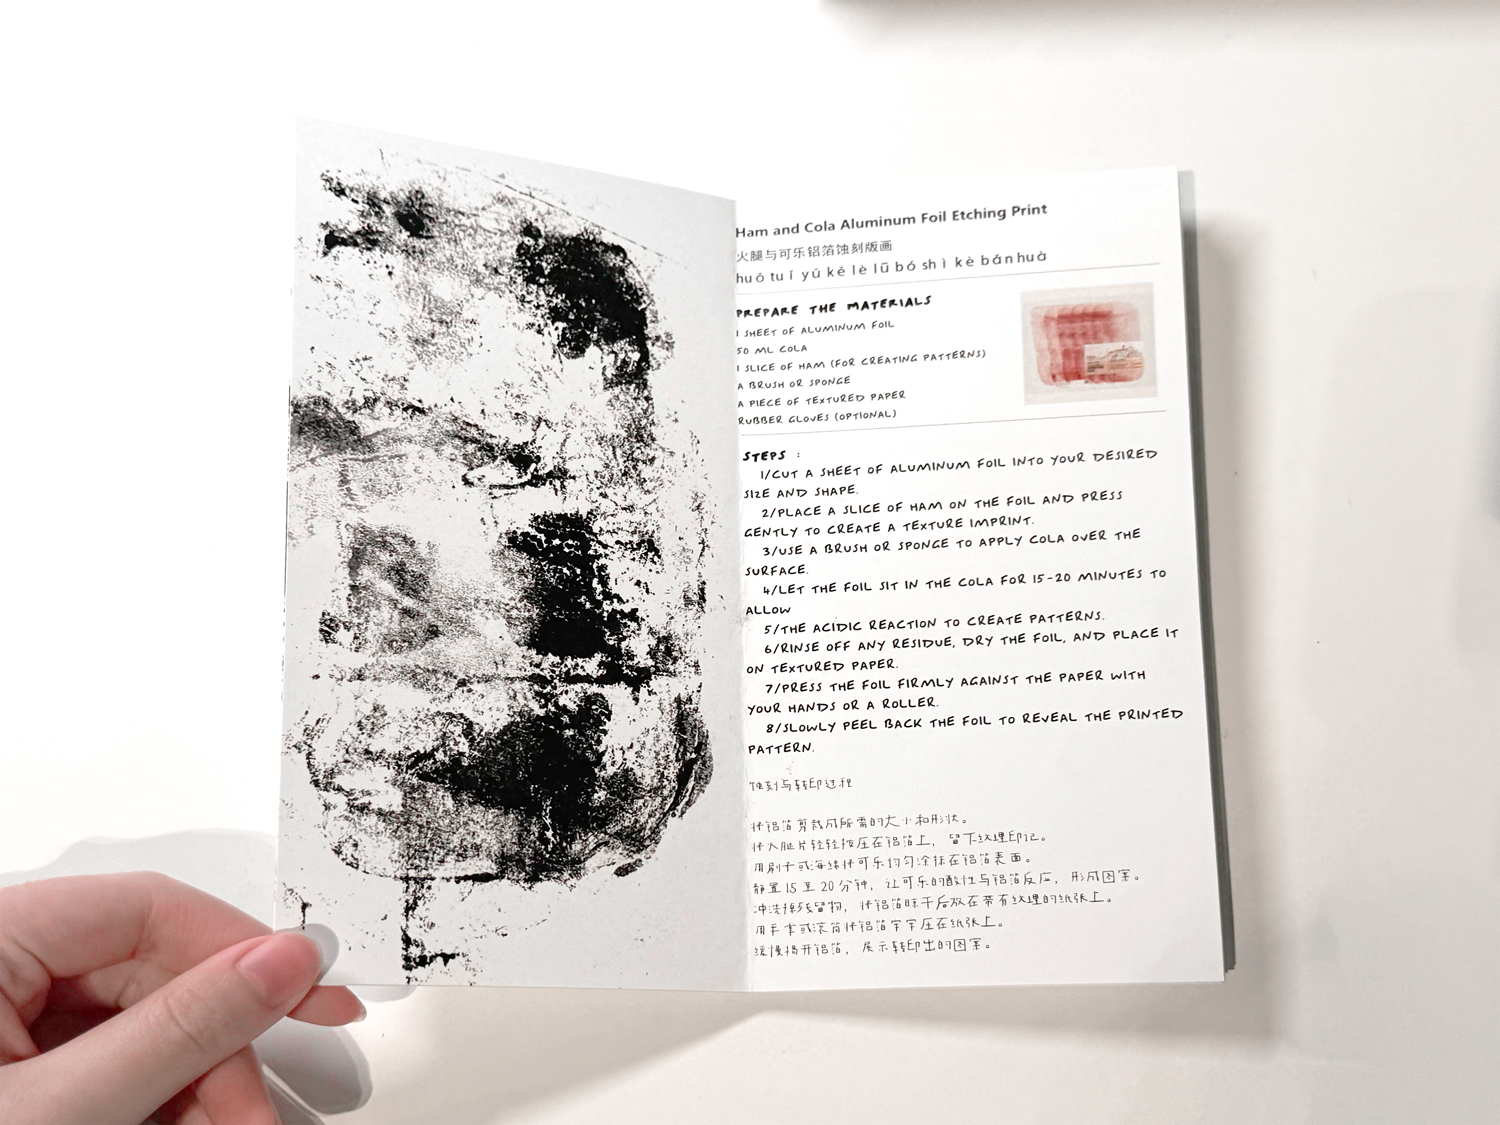 Ham and Cola Aluminum Foil Etching Print
火腿与可乐铝箔蚀刻版画
huǒ tuǐ yǔ kě lè lǚ bó shì kè bǎn huà
PREPARE THE MATERIALS
1 SHEET OF ALUMINUM FOIL
50 ML COLA
1 SLICE OF HAM (FOR CREATING PATTERNS)
A BRUSH OR SPONGE
A PIECE OF TEXTURED PAPER
RUBBER GLOVES (OPTIONAL)
STEPS :
1/CUT A SHEET OF ALUMINUM FOIL INTO YOUR DESIRED
SIZE AND SHAPE.
2/PLACE A SLICE OF HAM ON THE FOIL AND PRESS
GENTLY TO CREATE A TEXTURE IMPRINT.
3/USE A BRUSH OR SPONGE TO APPLY COLA OVER THE
SURFACE.
4/LET THE FOIL SIT IN THE COLA FOR 15-20 MINUTES TO
ALLOW
5/THE ACIDIC REACTION TO CREATE PATTERNS.
6/RINSE OFF ANY RESIDUE, DRY THE FOIL, AND PLACE IT
ON TEXTURED PAPER.
7/PRESS THE FOIL FIRMLY AGAINST THE PAPER WITH
YOUR HANDS OR A ROLLER.
8/SLOWLY PEEL BACK THE FOIL TO REVEAL THE PRINTED
PATTERN.
蚀刻与转印过程
将铝箔剪裁成所需的大小和形状。
将火腿片轻轻按压在铝箔上，留下纹理印记。
用刷子或海绵将可乐均匀涂抹在铝箔表面。
静置 15 至 20 分钟，让可乐的酸性与铝箔反应，形成图案。
冲洗掉残留物，将铝箔晾干后放在带有纹理的纸张上。
用手掌或滚筒将铝箔牢牢压在纸张上。
缓慢揭开铝箔，展示转印出的图案。